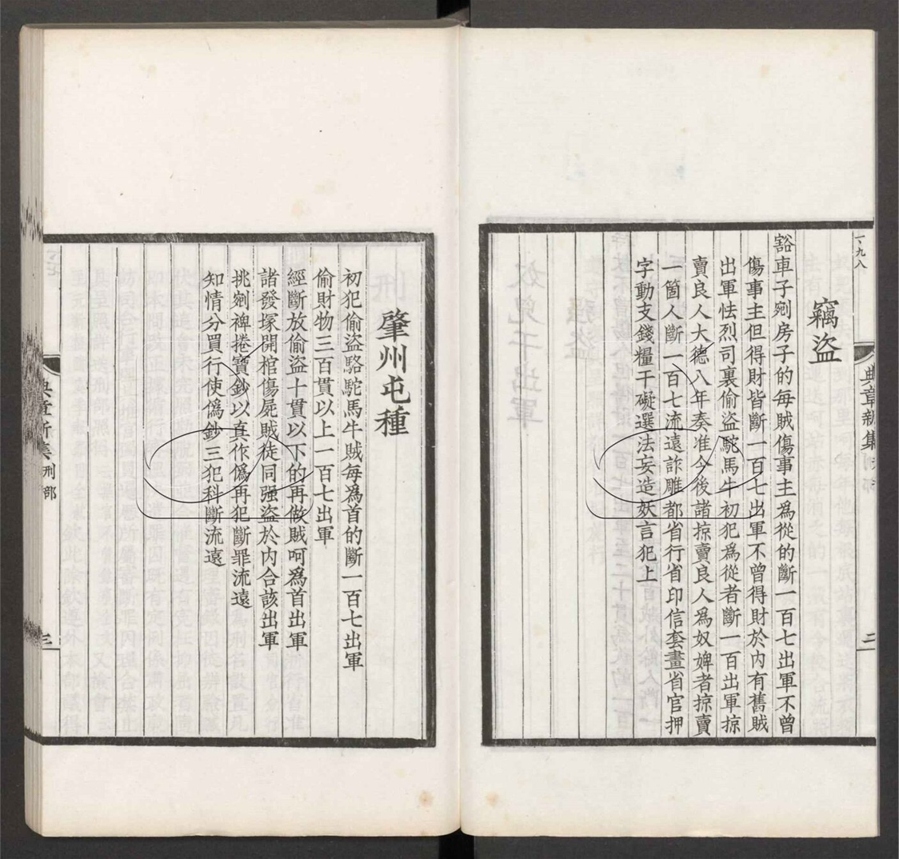 一、九八
典章新集 刑部 二
竊盜
豁車子剜房子的每賊傷事主爲從的斷一百七出軍不曾
傷事主但得財皆斷一百七出軍不曾得財於內有舊賊
出軍怯烈司裏偷盜駝馬牛初犯爲從者斷一百出軍掠
賣良人大德八年奏准今後諸掠賣良人爲奴婢者掠賣
一箇人斷一百七流遠詐雕都省行省印信套畫省官押
字動支錢糧干礙選法妄造妖言犯上
肇州屯種
初犯偷盜駱駝馬牛賊每爲首的斷一百七出軍
偷財物三百貫以上一百七出軍
經斷放偷盜十貫以下的再做賊呵爲首出軍
諸發塚開棺傷屍賊徒同强盜於內合該出軍
挑剜裨捲寶鈔以真作僞再犯斷罪流遠
知情分買行使僞鈔三犯科斷流遠
典章新集 刑部 三